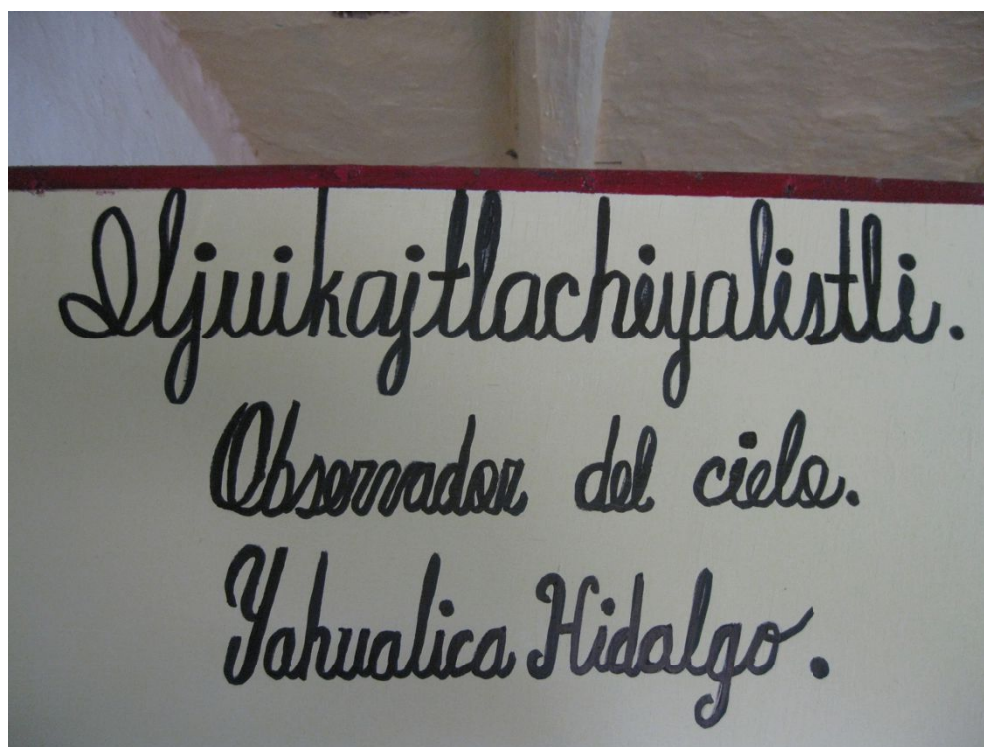 Iljuikajtlachiyalistli.
Observador del cielo.
Yahualica Hidalgo.